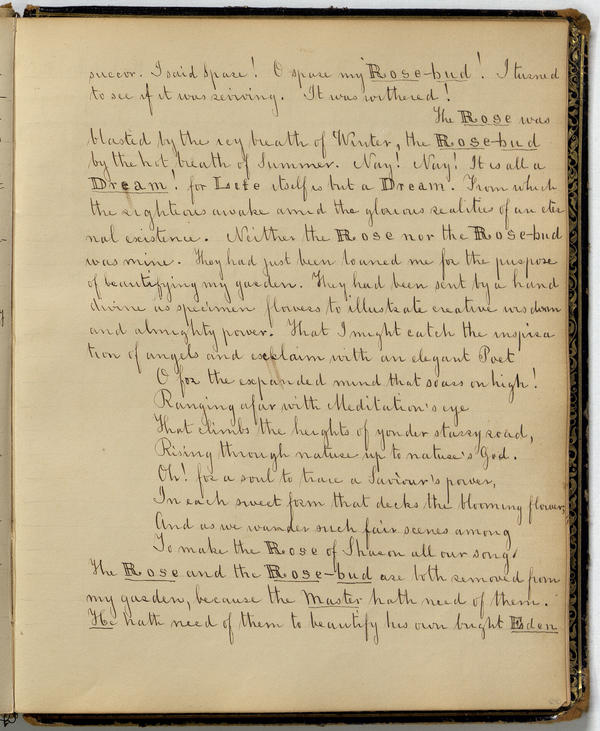 succor. I said spare! O spare my Rose-bud! I turned
to see if it was reviving. It was withered!
The Rose was
blasted by the icy breath of Winter, the Rose-bud
by the hot breath of Summer. Nay! Nay! It is all a
Dream! for Life itself is but a Dream. From which
the righteous awake amid the glorious realities of an eter
nal existence. Neither the Rose nor the Rose-bud
was mine. They had just been loaned me for the purpose
of beautifying my garden. They had been sent by a hand
divine as specimen flowers to illustrate creative wisdom
and almighty power. That I might catch the inspira
tion of angels and exclaim with an elegant Poet
O for the expanded mind that soars on high!
Ranging afar with Meditation's eye
That climbs the heights of yonder starry road,
Rising through nature up to nature's God.
Oh! for a soul to trace a Saviour's power,
In each sweet form that decks the blooming flower;
And as we wander such fair scenes among
To make the Rose of Sharon all our song.
The Rose and the Rose-bud are both removed from
my garden, because the Master hath need of them.
He hath need of them to beautify his own bright Eden